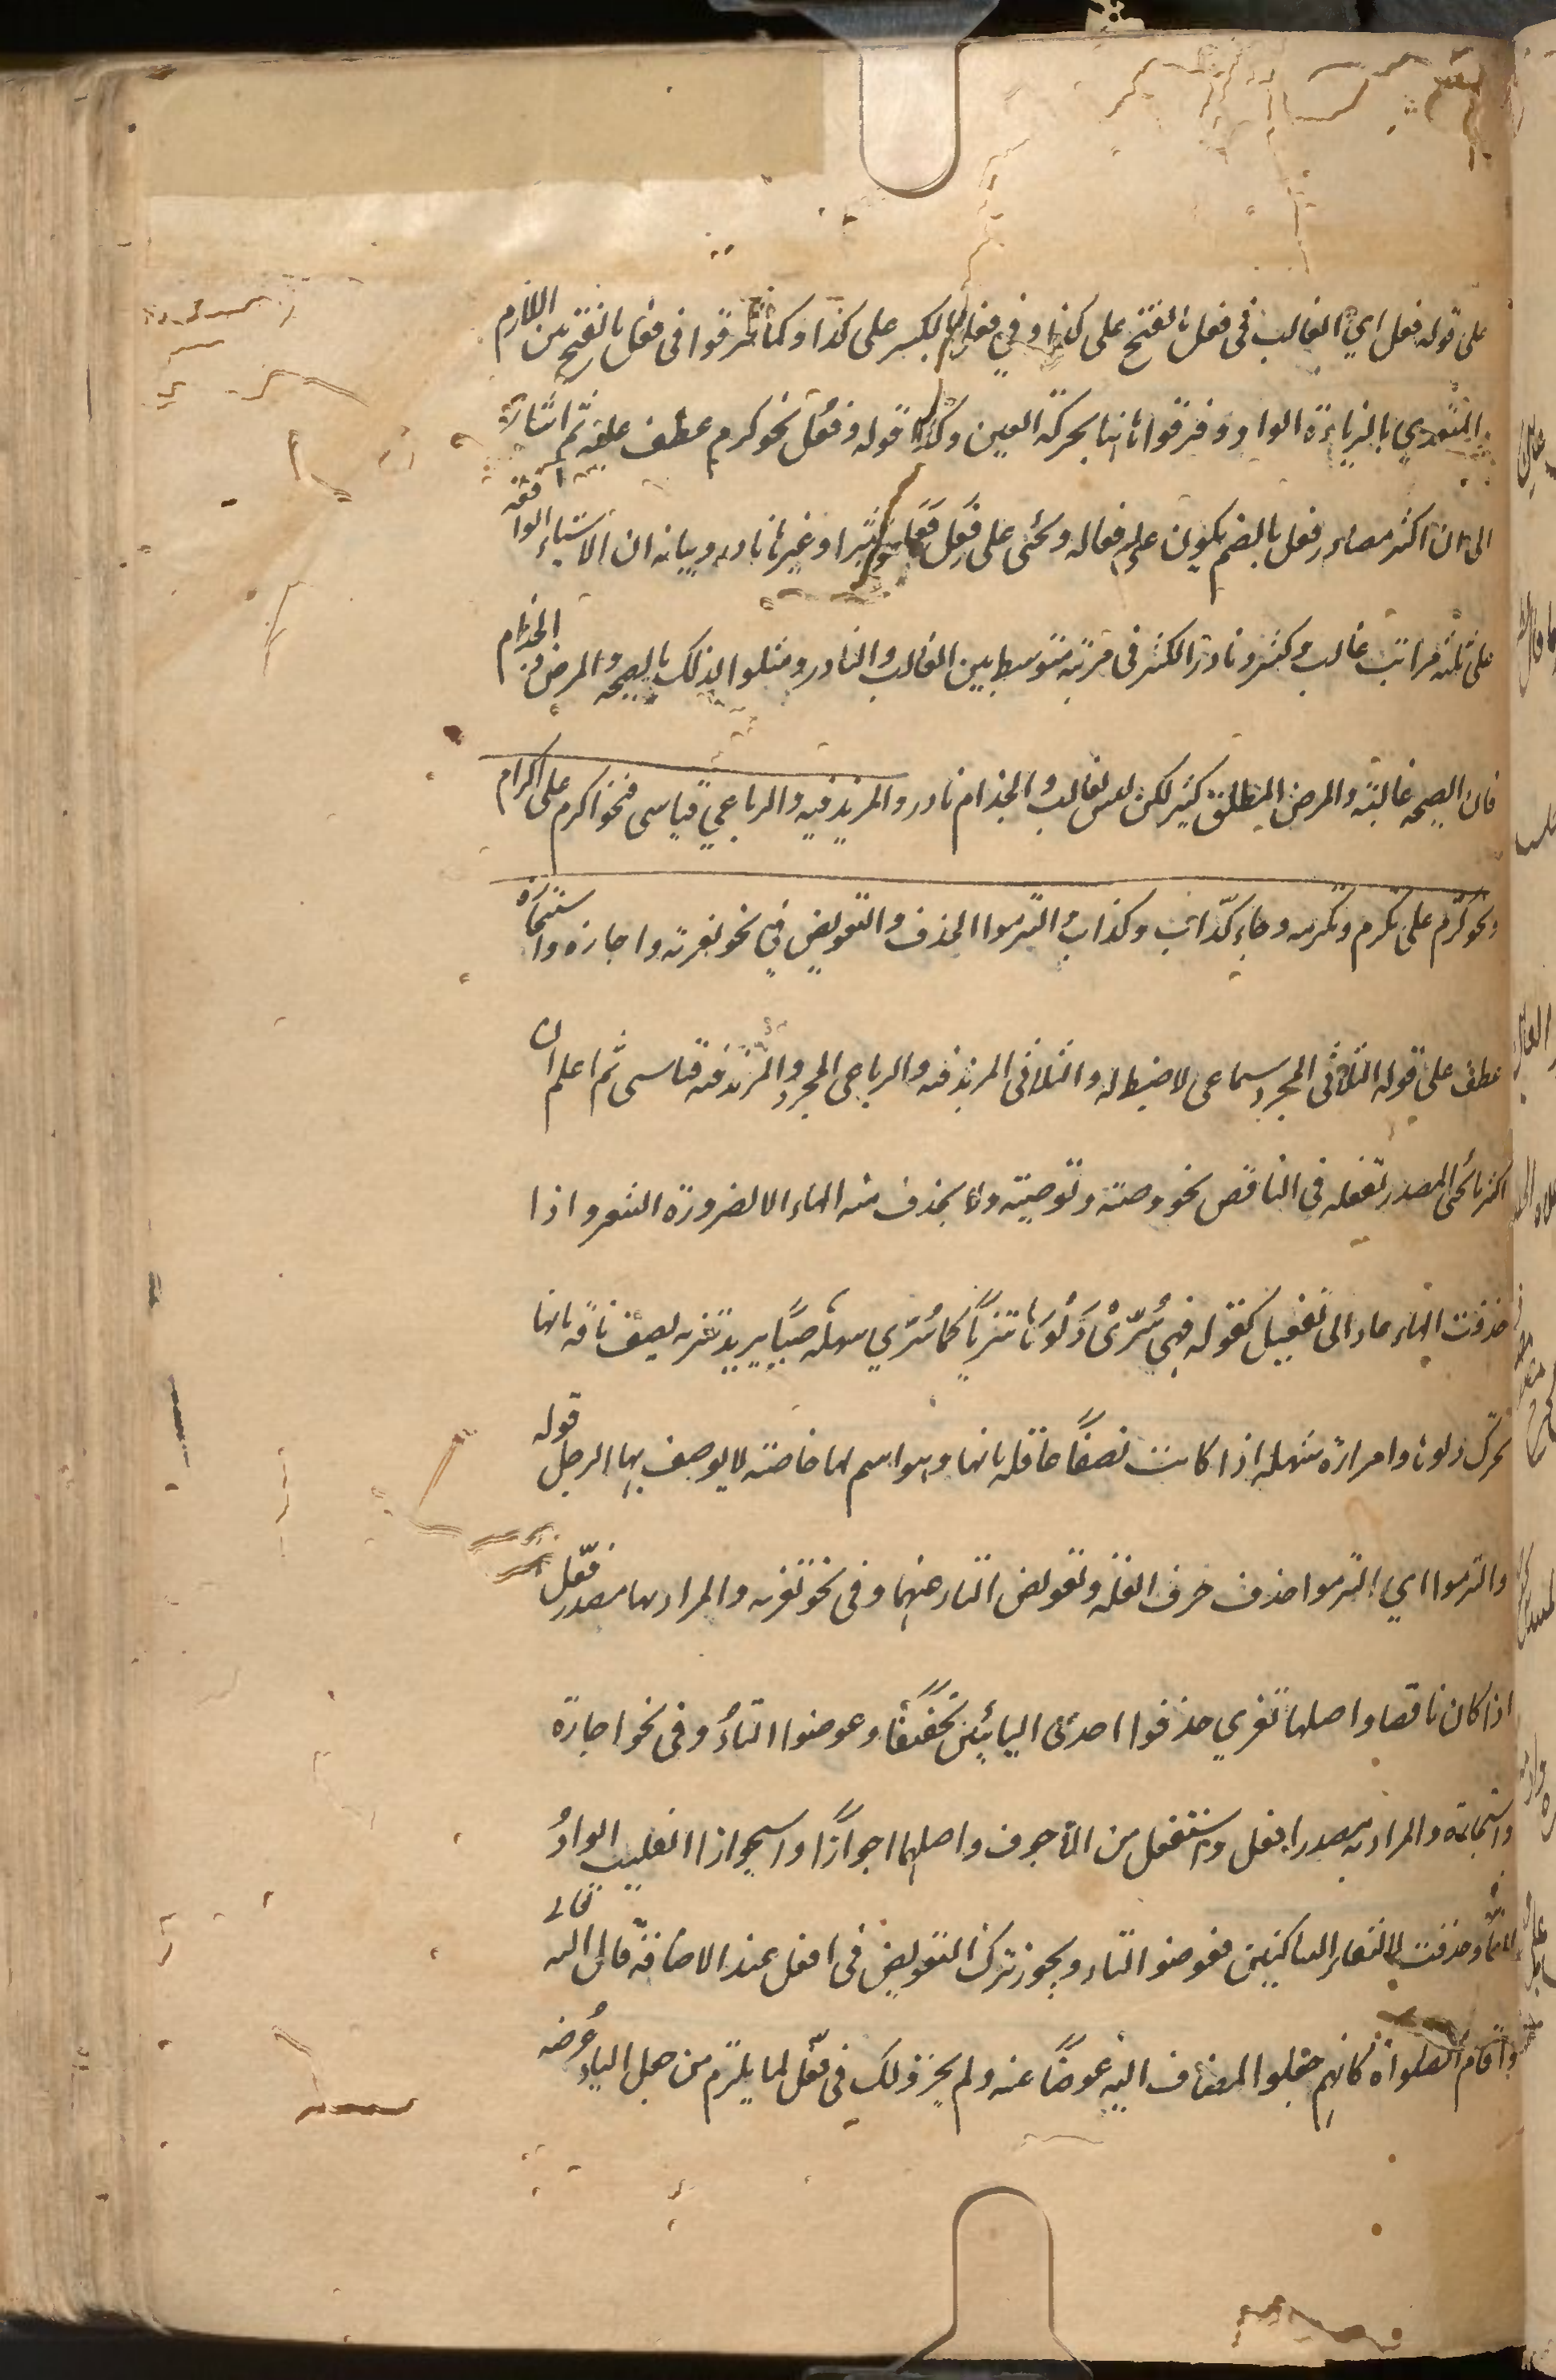 على قوله فعل اي الغالب في فعل بالفتح على كذا وفي فعل بالكسر على كذا وكما فرقوا في فعل بالفتح بين اللازم
والمتعدي بالزيادة الواو وفرقوا ثانيا بحركة العين وكذا قوله وفعُل نحو كرم عطف عليه ثم اشارة
الى ان اكثر مصادر فعل بالضم يكون على فعاله ويجئ على فِعَل فَعَل كثيرا وغيرها نادر وبيانه ان الاشياء الواقعة
على ثلثه مراتب غالب وكثير ونادر الكثير في مرتبة متوسط بين الغالب والنادر ومثلوا لذلك بالصحه والمرض والجذام
فان الصحه غالبة والمرض المطلق كثير لكن ليس بغالب والجذام نادر والمزيد فيه والرباعي قياسى فنحو اكرم على اكرام
ونحو كرّم على تكرم وتكرمه وجاء كذّاب وكذاب والتزموا الحذف والتعويض في نحو تعزية واجازه واستجازة
عطف على قوله الثلاثي المجرد سماعى لا ضبط له والثلاثى المزيد فيه والرباعى المجرد والمزيد فيه قياسى ثم اعلم ان
اكثر ما يجئ المصدر تفعله في الناقص نحو وصية وتوصية ولا يحذف منه الهاء الا لضرورة الشعر واذا
حذفت الهاء عاد الى تفعيل كقوله فهي تُنَزّي دَلْوَها تنزيّاً كما تُنَزّي شهلة صبيّاً يريد تنزيه يصف ناقه بانها
تحرك دلوها وامراة شهله اذا كانت نصفاً عاقله بانها وهو اسم لها خاصة لا يوصف بها الرجل قوله
والتزموا اي التزموا حذف حرف العلة وتعويض التاء عنهما وفى نحو تعزيه والمراد بها مصدر فعّل
اذا كان ناقصا واصلها تعزيي حذفوا احدى اليائين تخفيفاً وعوضوا التاءُ وفى نحو اجازة
واستجازة والمراد به مصدر افعل واستفعل من الاجوف واصلهما اجوازاً واستجوازا انقلبت الواوُ
الفاً وحذفت لالتقاء الساكنين فعوضوا التاء ويجوز ترك التعويض فى افعل عند الاضافة قال الله تعالى
واقام الصلوة كانهم جعلوا المضاف اليه عوضاً عنه ولم يجز ذلك فى فعّل لما يلزم من جعل الياء عُرضه